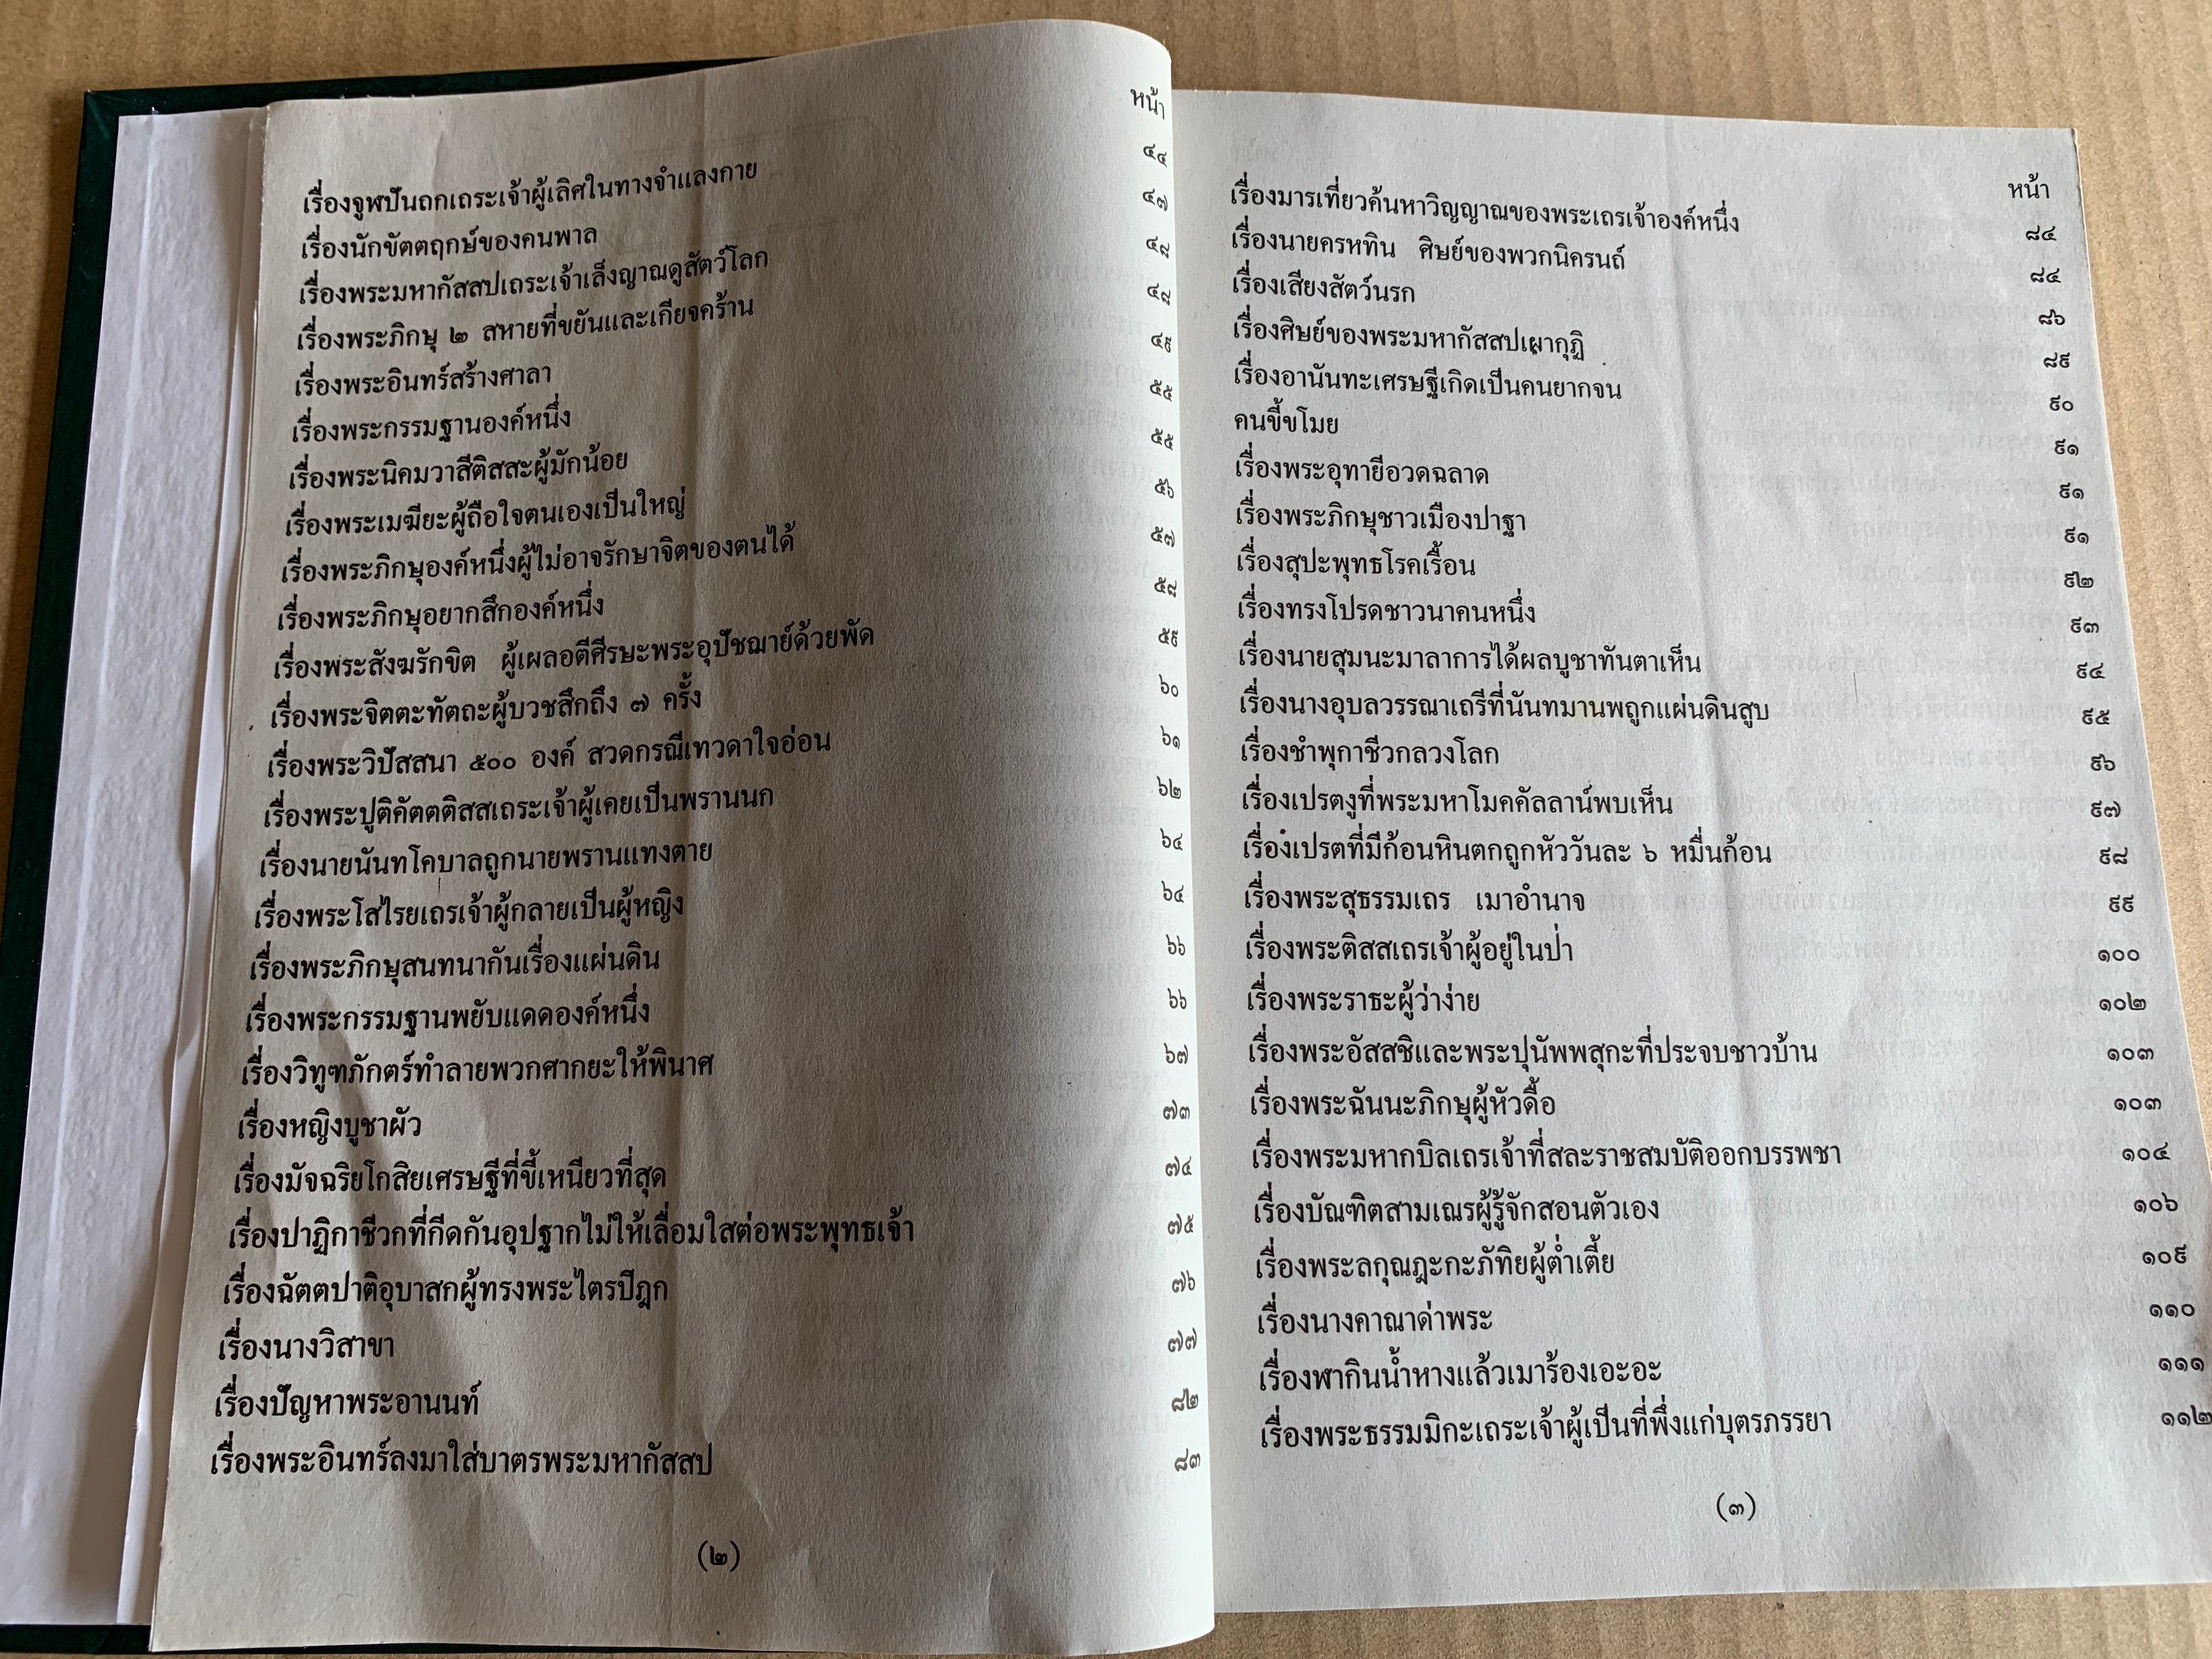 หน้า
เรื่องจูฬปันถกเถระเจ้าผู้เลิศในทางจำแลงกาย ๔๔
เรื่องนักขัตตฤกษ์ของคนพาล ๔๗
เรื่องพระมหากัสสปเถระเจ้าเล็งญาณดูสัตว์โลก ๔๘
เรื่องพระภิกษุ ๒ สหายที่ขยันและเกียจคร้าน ๔๘
เรื่องพระอินทร์สร้างศาลา ๔๙
เรื่องพระกรรมฐานองค์หนึ่ง ๕๕
เรื่องพระนิคมวาสีติสสะผู้มักน้อย ๕๕
เรื่องพระเมฆียะผู้ถือใจตนเองเป็นใหญ่ ๕๖
เรื่องพระภิกษุองค์หนึ่งผู้ไม่อาจรักษาจิตของตนได้ ๕๗
เรื่องพระภิกษุอยากสึกองค์หนึ่ง ๕๘
เรื่องพระสังฆรักขิต ผู้เผลอตีศีรษะพระอุปัชฌาย์ด้วยพัด ๕๙
เรื่องพระจิตตะทัตถะผู้บวชสึกถึง ๗ ครั้ง ๖๐
เรื่องพระวิปัสสนา ๕๐๐ องค์ สวดกรณีเทวดาใจอ่อน ๖๑
เรื่องพระปูติคัตตติสสเถระเจ้าผู้เคยเป็นพรานนก ๖๒
เรื่องนายนันทโคบาลถูกนายพรานแทงตาย ๖๔
เรื่องพระโสไรยเถรเจ้าผู้กลายเป็นผู้หญิง ๖๔
เรื่องพระภิกษุสนทนากันเรื่องแผ่นดิน ๖๖
เรื่องพระกรรมฐานพยับแดดองค์หนึ่ง ๖๖
เรื่องวิทูฑภักตร์ทำลายพวกศากยะให้พินาศ ๖๗
เรื่องหญิงบูชาผัว ๗๓
เรื่องมัจฉริยโกสิยเศรษฐีที่ขี้เหนียวที่สุด ๗๔
เรื่องปาฏิกาชีวกที่กีดกันอุปฐากไม่ให้เลื่อมใสต่อพระพุทธเจ้า ๗๕
เรื่องฉัตตปาติอุบาสกผู้ทรงพระไตรปีฎก ๗๖
เรื่องนางวิสาขา ๗๗
เรื่องปัญหาพระอานนท์ ๘๒
เรื่องพระอินทร์ลงมาใส่บาตรพระมหากัสสป ๘๓
(๒)
หน้า
เรื่องมารเที่ยวค้นหาวิญญาณของพระเถรเจ้าองค์หนึ่ง ๘๔
เรื่องนายครหทิน ศิษย์ของพวกนิครนถ์ ๘๔
เรื่องเสียงสัตว์นรก ๘๖
เรื่องศิษย์ของพระมหากัสสปเผากุฏิ ๘๙
เรื่องอานันทะเศรษฐีเกิดเป็นคนยากจน ๙๐
คนขี้ขโมย ๙๑
เรื่องพระอุทายีอวดฉลาด ๙๑
เรื่องพระภิกษุชาวเมืองปาฐา ๙๑
เรื่องสุปะพุทธโรคเรื้อน ๙๒
เรื่องทรงโปรดชาวนาคนหนึ่ง ๙๓
เรื่องนายสุมนะมาลาการได้ผลบูชาทันตาเห็น ๙๔
เรื่องนางอุบลวรรณาเถรีที่นันทมานพถูกแผ่นดินสูบ ๙๕
เรื่องชำพุกาชีวกลวงโลก ๙๖
เรื่องเปรตงูที่พระมหาโมคคัลลาน์พบเห็น ๙๗
เรื่องเปรตที่มีก้อนหินตกถูกหัววันละ ๖ หมื่นก้อน ๙๘
เรื่องพระสุธรรมเถร เมาอำนาจ ๙๙
เรื่องพระติสสเถรเจ้าผู้อยู่ในป่า ๑๐๐
เรื่องพระราธะผู้ว่าง่าย ๑๐๒
เรื่องพระอัสสชิและพระปุนัพพสุกะที่ประจบชาวบ้าน ๑๐๓
เรื่องพระฉันนะภิกษุผู้หัวดื้อ ๑๐๓
เรื่องพระมหากบิลเถรเจ้าที่สละราชสมบัติออกบรรพชา ๑๐๔
เรื่องบัณฑิตสามเณรผู้รู้จักสอนตัวเอง ๑๐๖
เรื่องพระลกุณฎะกะภัทิยผู้ต่ำเตี้ย ๑๐๙
เรื่องนางคาณาด่าพระ ๑๑๐
เรื่องฬากินน้ำหางแล้วเมาร้องเอะอะ ๑๑๑
เรื่องพระธรรมมิกะเถระเจ้าผู้เป็นที่พึ่งแก่บุตรภรรยา ๑๑๒
(๓)